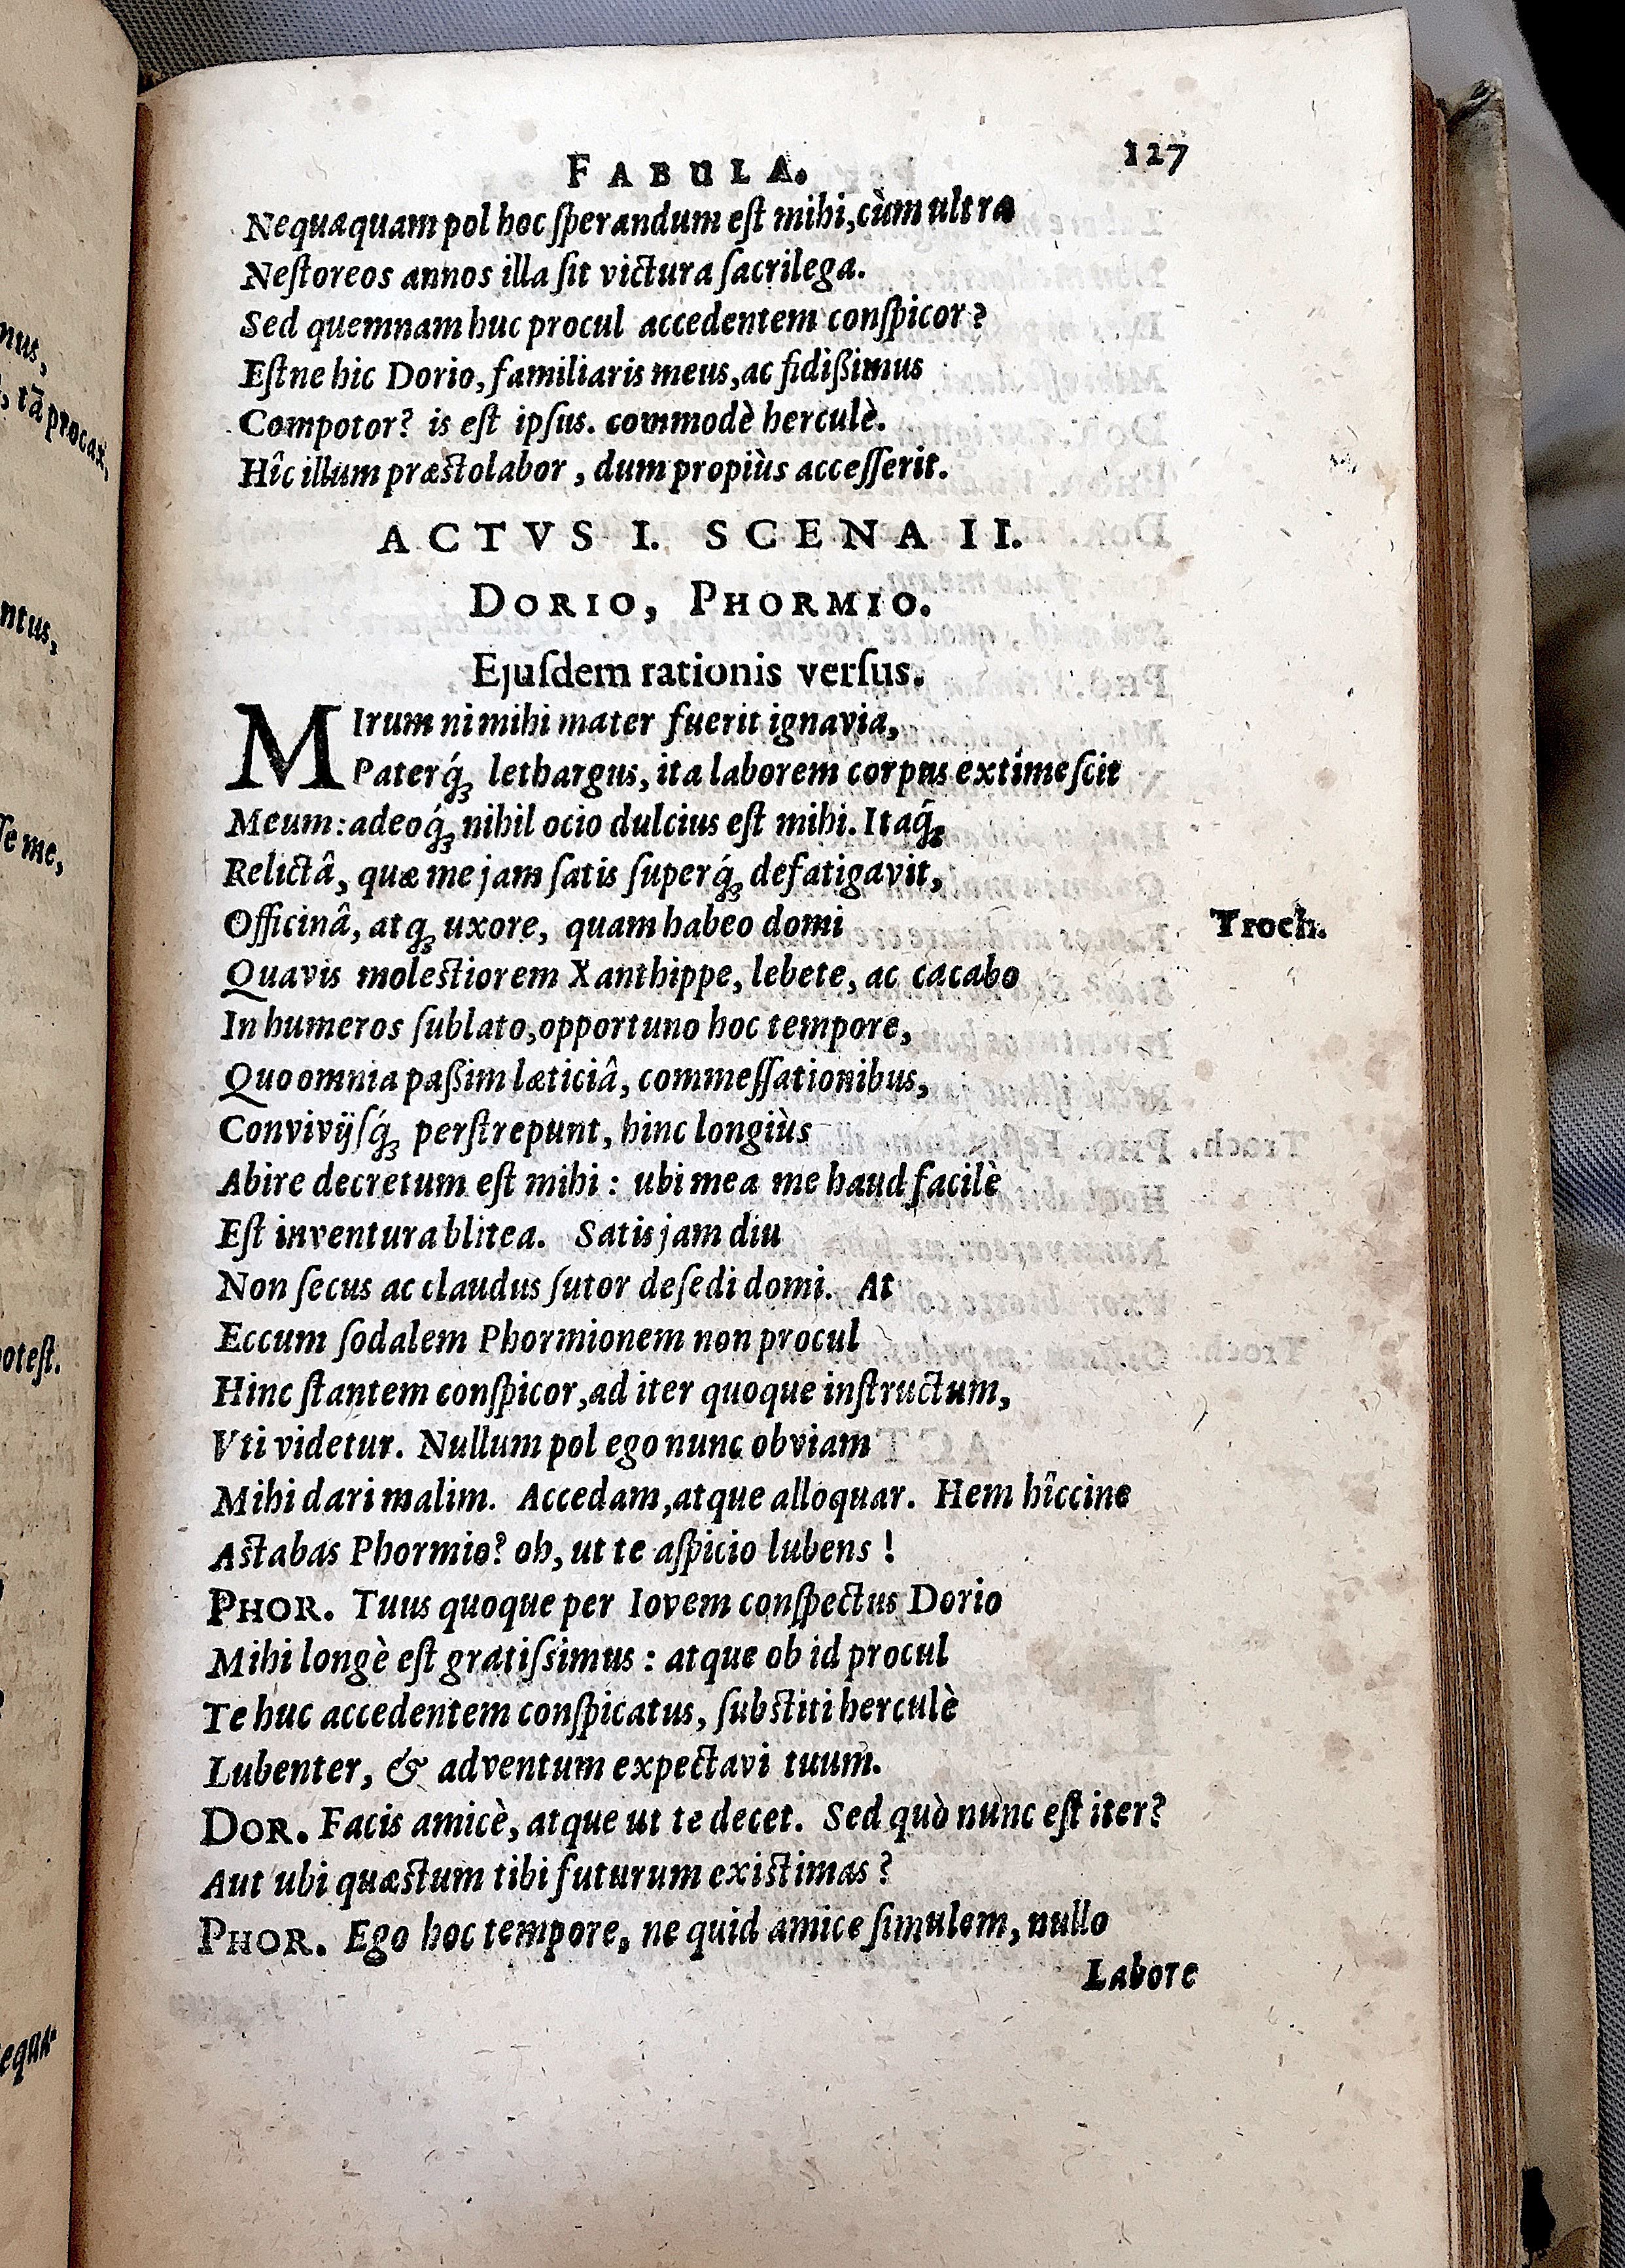 FABULA. 127
Nequaquam pol hoc ſperandum eſt mihi, cùm ultra
Neſtoreos annos illa ſit victura ſacrilega.
Sed quemnam huc procul accedentem conſpicor?
Eſtne hic Dorio, familiaris meus, ac fidißimus
Compotor? is eſt ipſus. commodè herculè.
Hîc illum præstolabor, dum propiùs acceſſerit.
ACTVS I. SCENA II.
DORIO, PHORMIO.
Ejuſdem rationis verſus.
MIrum ni mihi mater fuerit ignavia,
Paterq́ꝫ lethargus, ita laborem corpus extimeſcit
Meum: adeoq́ꝫ nihil ocio dulcius eſt mihi. Itaq́ꝫ
Relictâ, quæ me jam ſatis ſuperq́ꝫ defatigavit,
Officinâ, atqꝫ uxore, quam habeo domi Troch.
Quavis molestiorem Xanthippe, lebete, ac cacabo
In humeros ſublato, opportuno hoc tempore,
Quo omnia paßim læticiâ, commeſſationibus,
Convivijſq́ꝫ perſtrepunt, hinc longiùs
Abire decretum eſt mihi: ubi mea me haud facilè
Eſt inventura blitea. Satis jam diu
Non ſecus ac claudus ſutor deſedi domi. At
Eccum ſodalem Phormionem non procul
Hinc ſtantem conſpicor, ad iter quoque inſtructum,
Vti videtur. Nullum pol ego nunc obviam
Mihi dari malim. Accedam, atque alloquar. Hem hîccine
Astabas Phormio? oh, ut te aſpicio lubens!
PHOR. Tuus quoque per Iovem conſpectus Dorio
Mihi longè eſt gratiſsimus: atque ob id procul
Te huc accedentem conſpicatus, ſubstiti herculè
Lubenter, & adventum expectavi tuum.
DOR. Facis amicè, atque ut te decet. Sed quò nunc eſt iter?
Aut ubi quæstum tibi futurum existimas?
PHOR. Ego hoc tempore, ne quid amice ſimulem, nullo
Labore
nus,
tā procax,
ntus,
ſſe me,
poteſt.
equa-